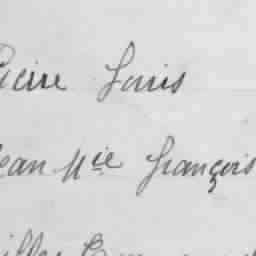 Pierre Louis
Jean Mie François